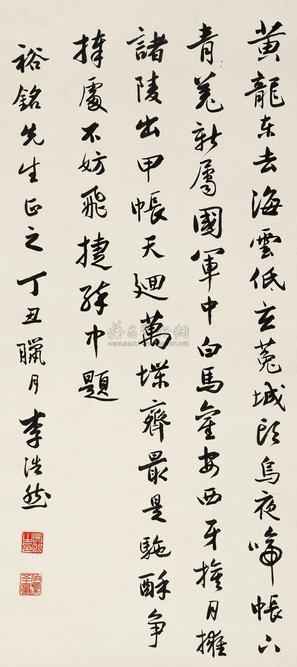 黄龍東去海雲低玄菟城頭烏夜啼帳下
青羗新屬國軍中白馬舊安西牙月擁
諸陵出甲帳天迴萬堞齊最是駞酥争
捧處不妨飛捷醉中題
裕銘先生正之丁丑臘月李浩然